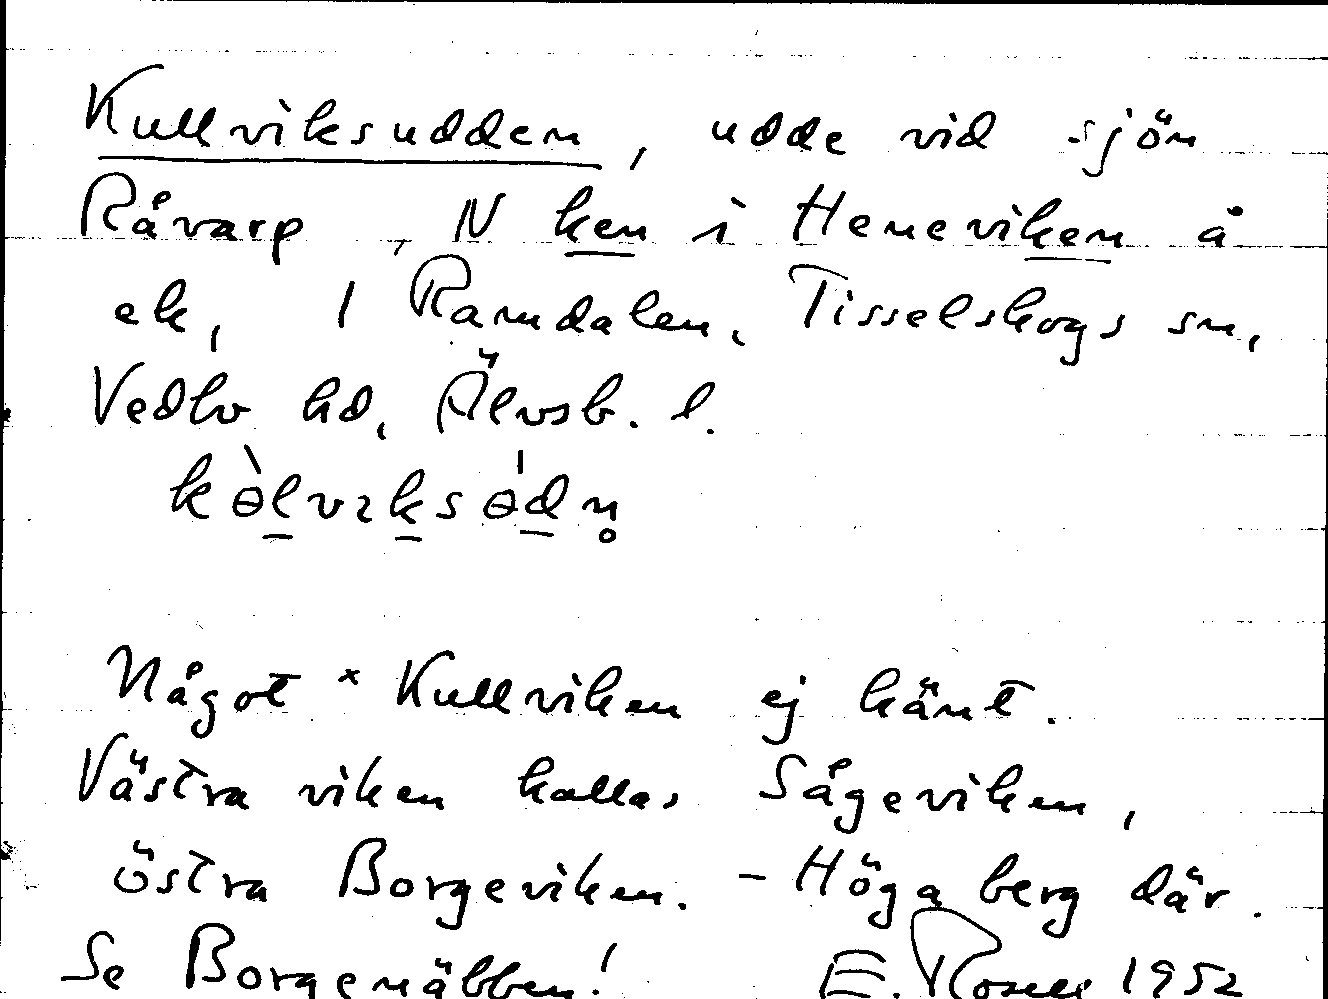 Kullviksudden, udde vid sjön
Råvarp, N ken i Heneviken å
ek, 1 Ramdalen, Tisselskogs sn,
Vedbo hd, Älvsb. l.
kɵ̀lvɩksɵ́dn̥
Något × Kullviken ej känt.
Västra viken kallas Sågeviken,
östra Borgeviken. - Höga berg där.
Se Borgenäbben! E. Rosell 1952